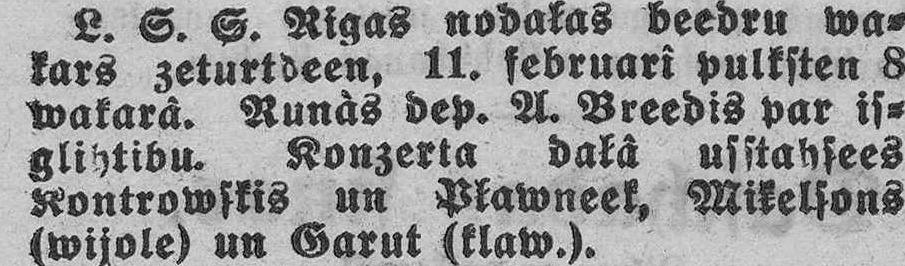 L. S. S. Rigas nodaļas beedru wa-
kars zeturtdeen, 11. februarî pulksten 8
wakarâ. Runàs dep. A. Breedis par is-
glihtibu. Konzerta daļâ usstahsees
Kontrowskis un Pļawneek, Miķelsons
(wijole) un Garut (klaw.).